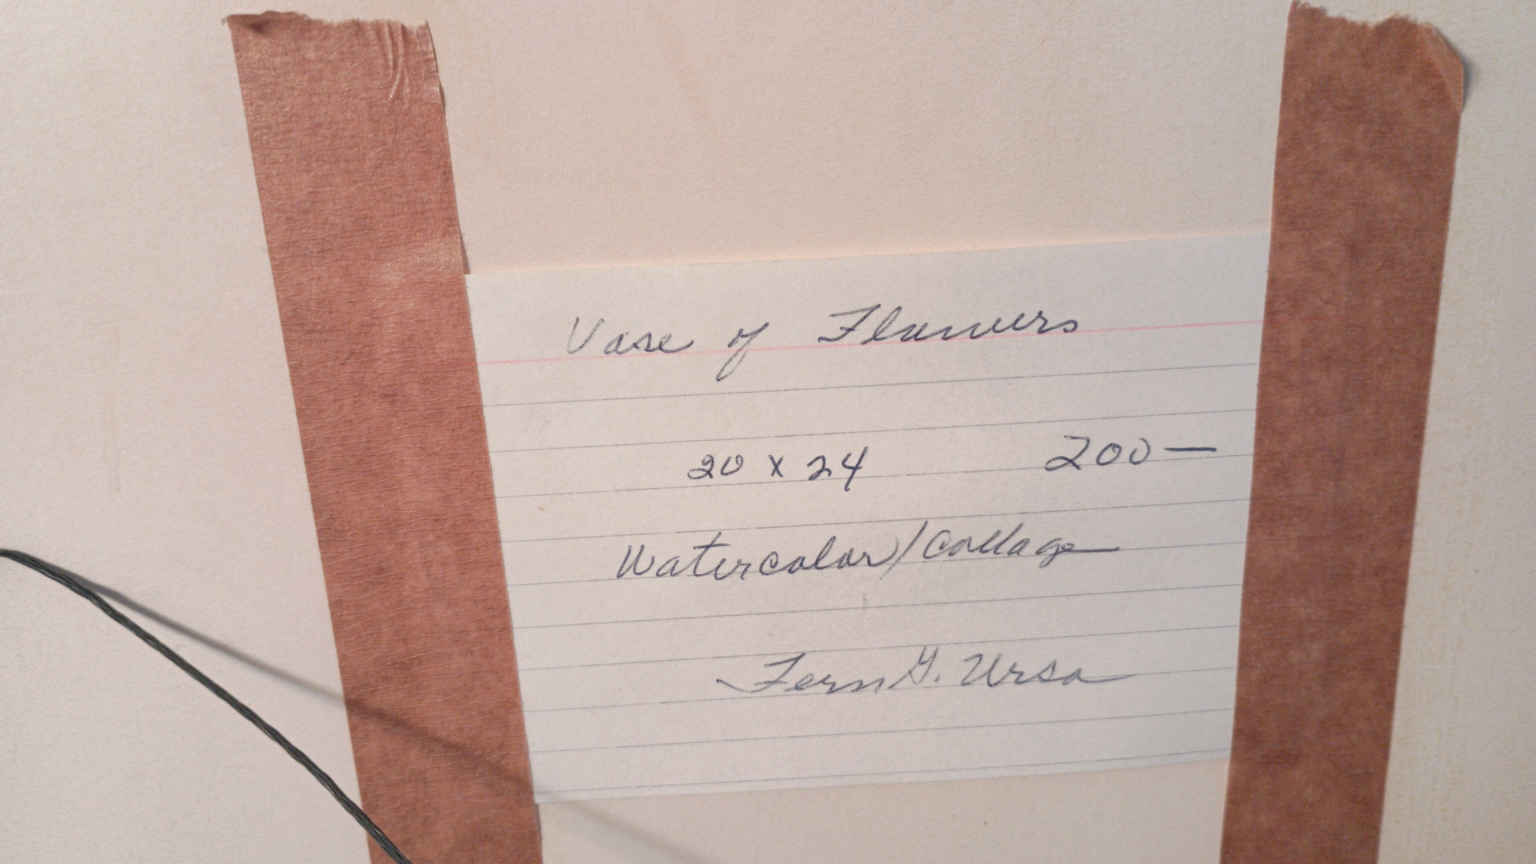 Vase of Flowers
20 x 24 200—
Watercolor/Collage
Fern G. Ursa